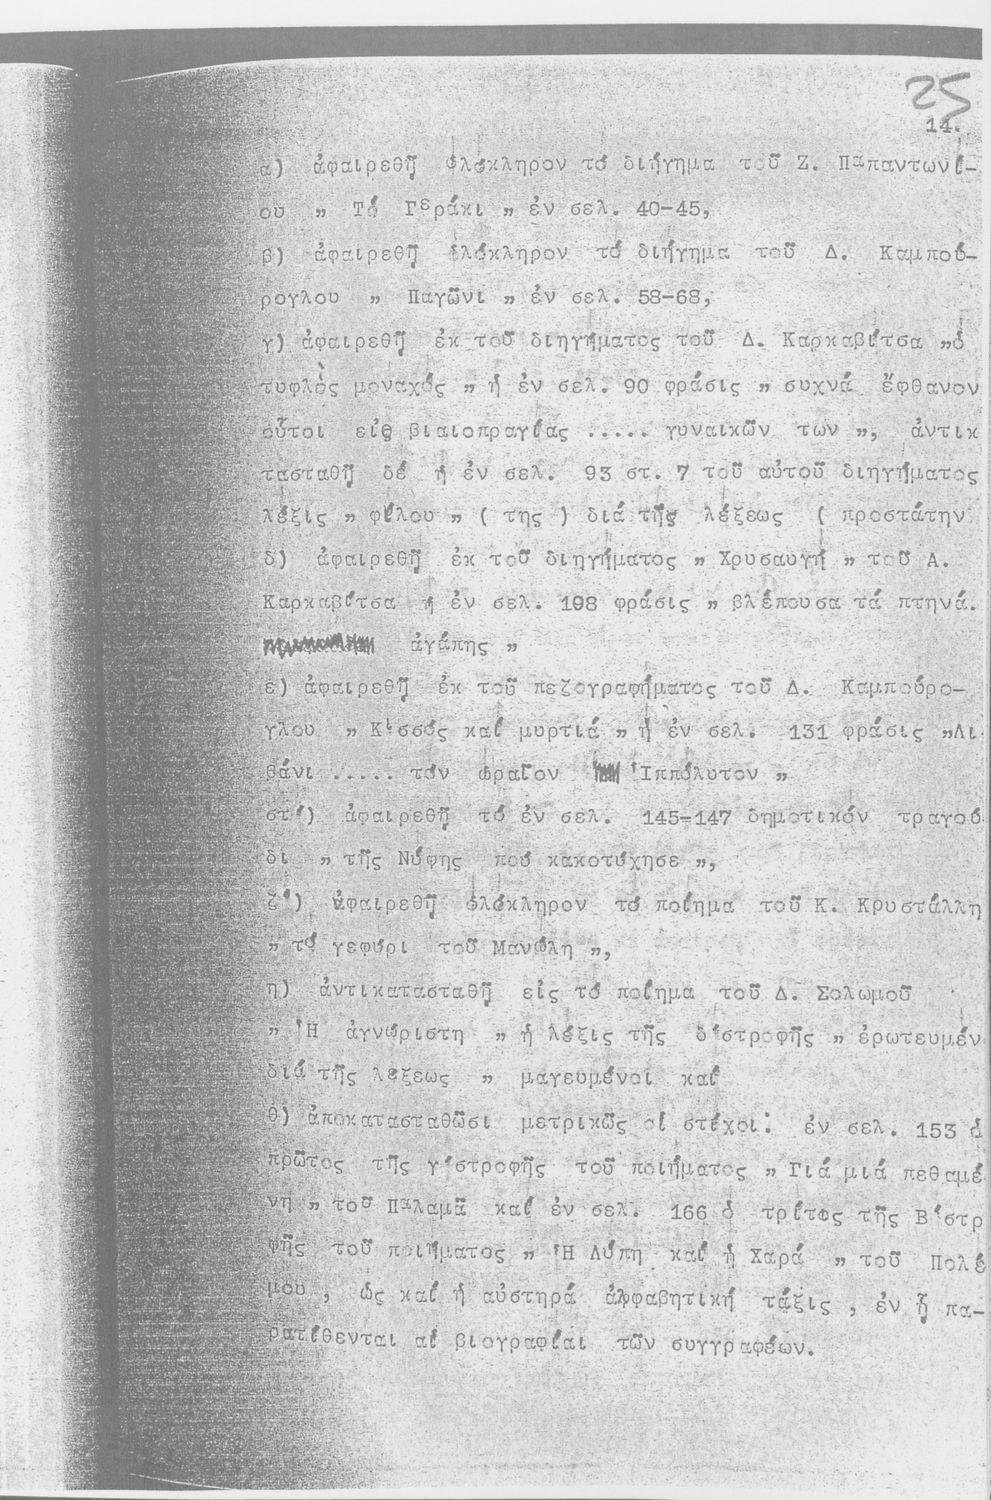 25
14.
α) ἀφαιρεθῇ ὁλόκληρον τό διήγημα τοῦ Ζ. Παπαντωνί-
ου „ Τό Γεράκι „ ἐν σελ. 40-45,
β) ἀφαιρεθῇ ὁλόκληρον τό διήγημα τοῦ Δ. Καμπού-
ρογλου „ Παγῶνι „ ἐν σελ. 58-68,
γ) ἀφαιρεθῇ ἐκ τοῦ διηγήματος τοῦ Δ. Καρκαβίτσα „ὁ
τυφλὸς μοναχός „ ἡ ἐν σελ. 90 φράσις „ συχνά ἔφθανον
οὗτοι εἰς βιαιοπραγίας ..... γυναικῶν των „, ἀντικ
τασταθῇ δέ ἡ ἐν σελ. 93 στ. 7 τοῦ αὐτοῦ διηγήματος
λέξις „ φίλου „ ( της ) διά τῆς λέξεως ( προστάτην
δ) ἀφαιρεθῇ ἐκ τοῦ διηγήματος „ Χρυσαυγή „ τοῦ Α.
Καρκαβίτσα ἡ ἐν σελ. 108 φράσις „ βλέπουσα τά πτηνά.
ἀγάπης „
ε) ἀφαιρεθῇ ἐκ τοῦ πεζογραφήματος τοῦ Δ. Καμπούρο-
γλου „ Κισσός καί μυρτιά „ ἡ ἐν σελ. 131 φράσις „Λι
βάνι ..... τόν ὡραῖον Ἱππόλυτον „
στ') ἀφαιρεθῇ τό ἐν σελ. 145-147 δημοτικόν τραγού
δι „ τῆς Νύφης πού κακοτύχησε „,
ζ') ἀφαιρεθῇ ὁλόκληρον τό ποίημα τοῦ Κ. Κρυστάλλη
„ τό γεφύρι τοῦ Μανώλη „,
η) ἀντικατασταθῇ εἰς τό ποίημα τοῦ Δ. Σολωμοῦ
„ Ἡ ἀγνώριστη „ ἡ λέξις τῆς δ'στροφῆς „ ἐρωτευμέν
διά τῆς λέξεως „ μαγευμένοι καί
θ) ἀποκατασταθῶσι μετρικῶς οἱ στίχοι: ἐν σελ. 153 ὁ
πρῶτος τῆς γ'στροφῆς τοῦ ποιήματος „ Γιά μιά πεθαμέ
νη „ τοῦ Παλαμᾶ καί ἐν σελ. 166 ὁ τρίτος τῆς Β'στρ
φῆς τοῦ ποιήματος „ Ἡ Λύπη καί ἡ Χαρά „ τοῦ Πολέ
μου , ὡς καί ἡ αὐστηρά ἀλφαβητική τάξις , ἐν ᾗ πα-
ρατίθενται αἱ βιογραφίαι τῶν συγγραφέων.